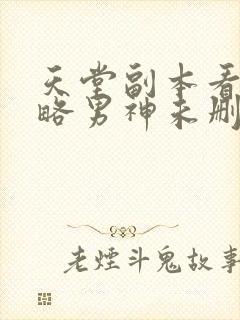 天堂副本看
略男神未删
老煙斗鬼故事